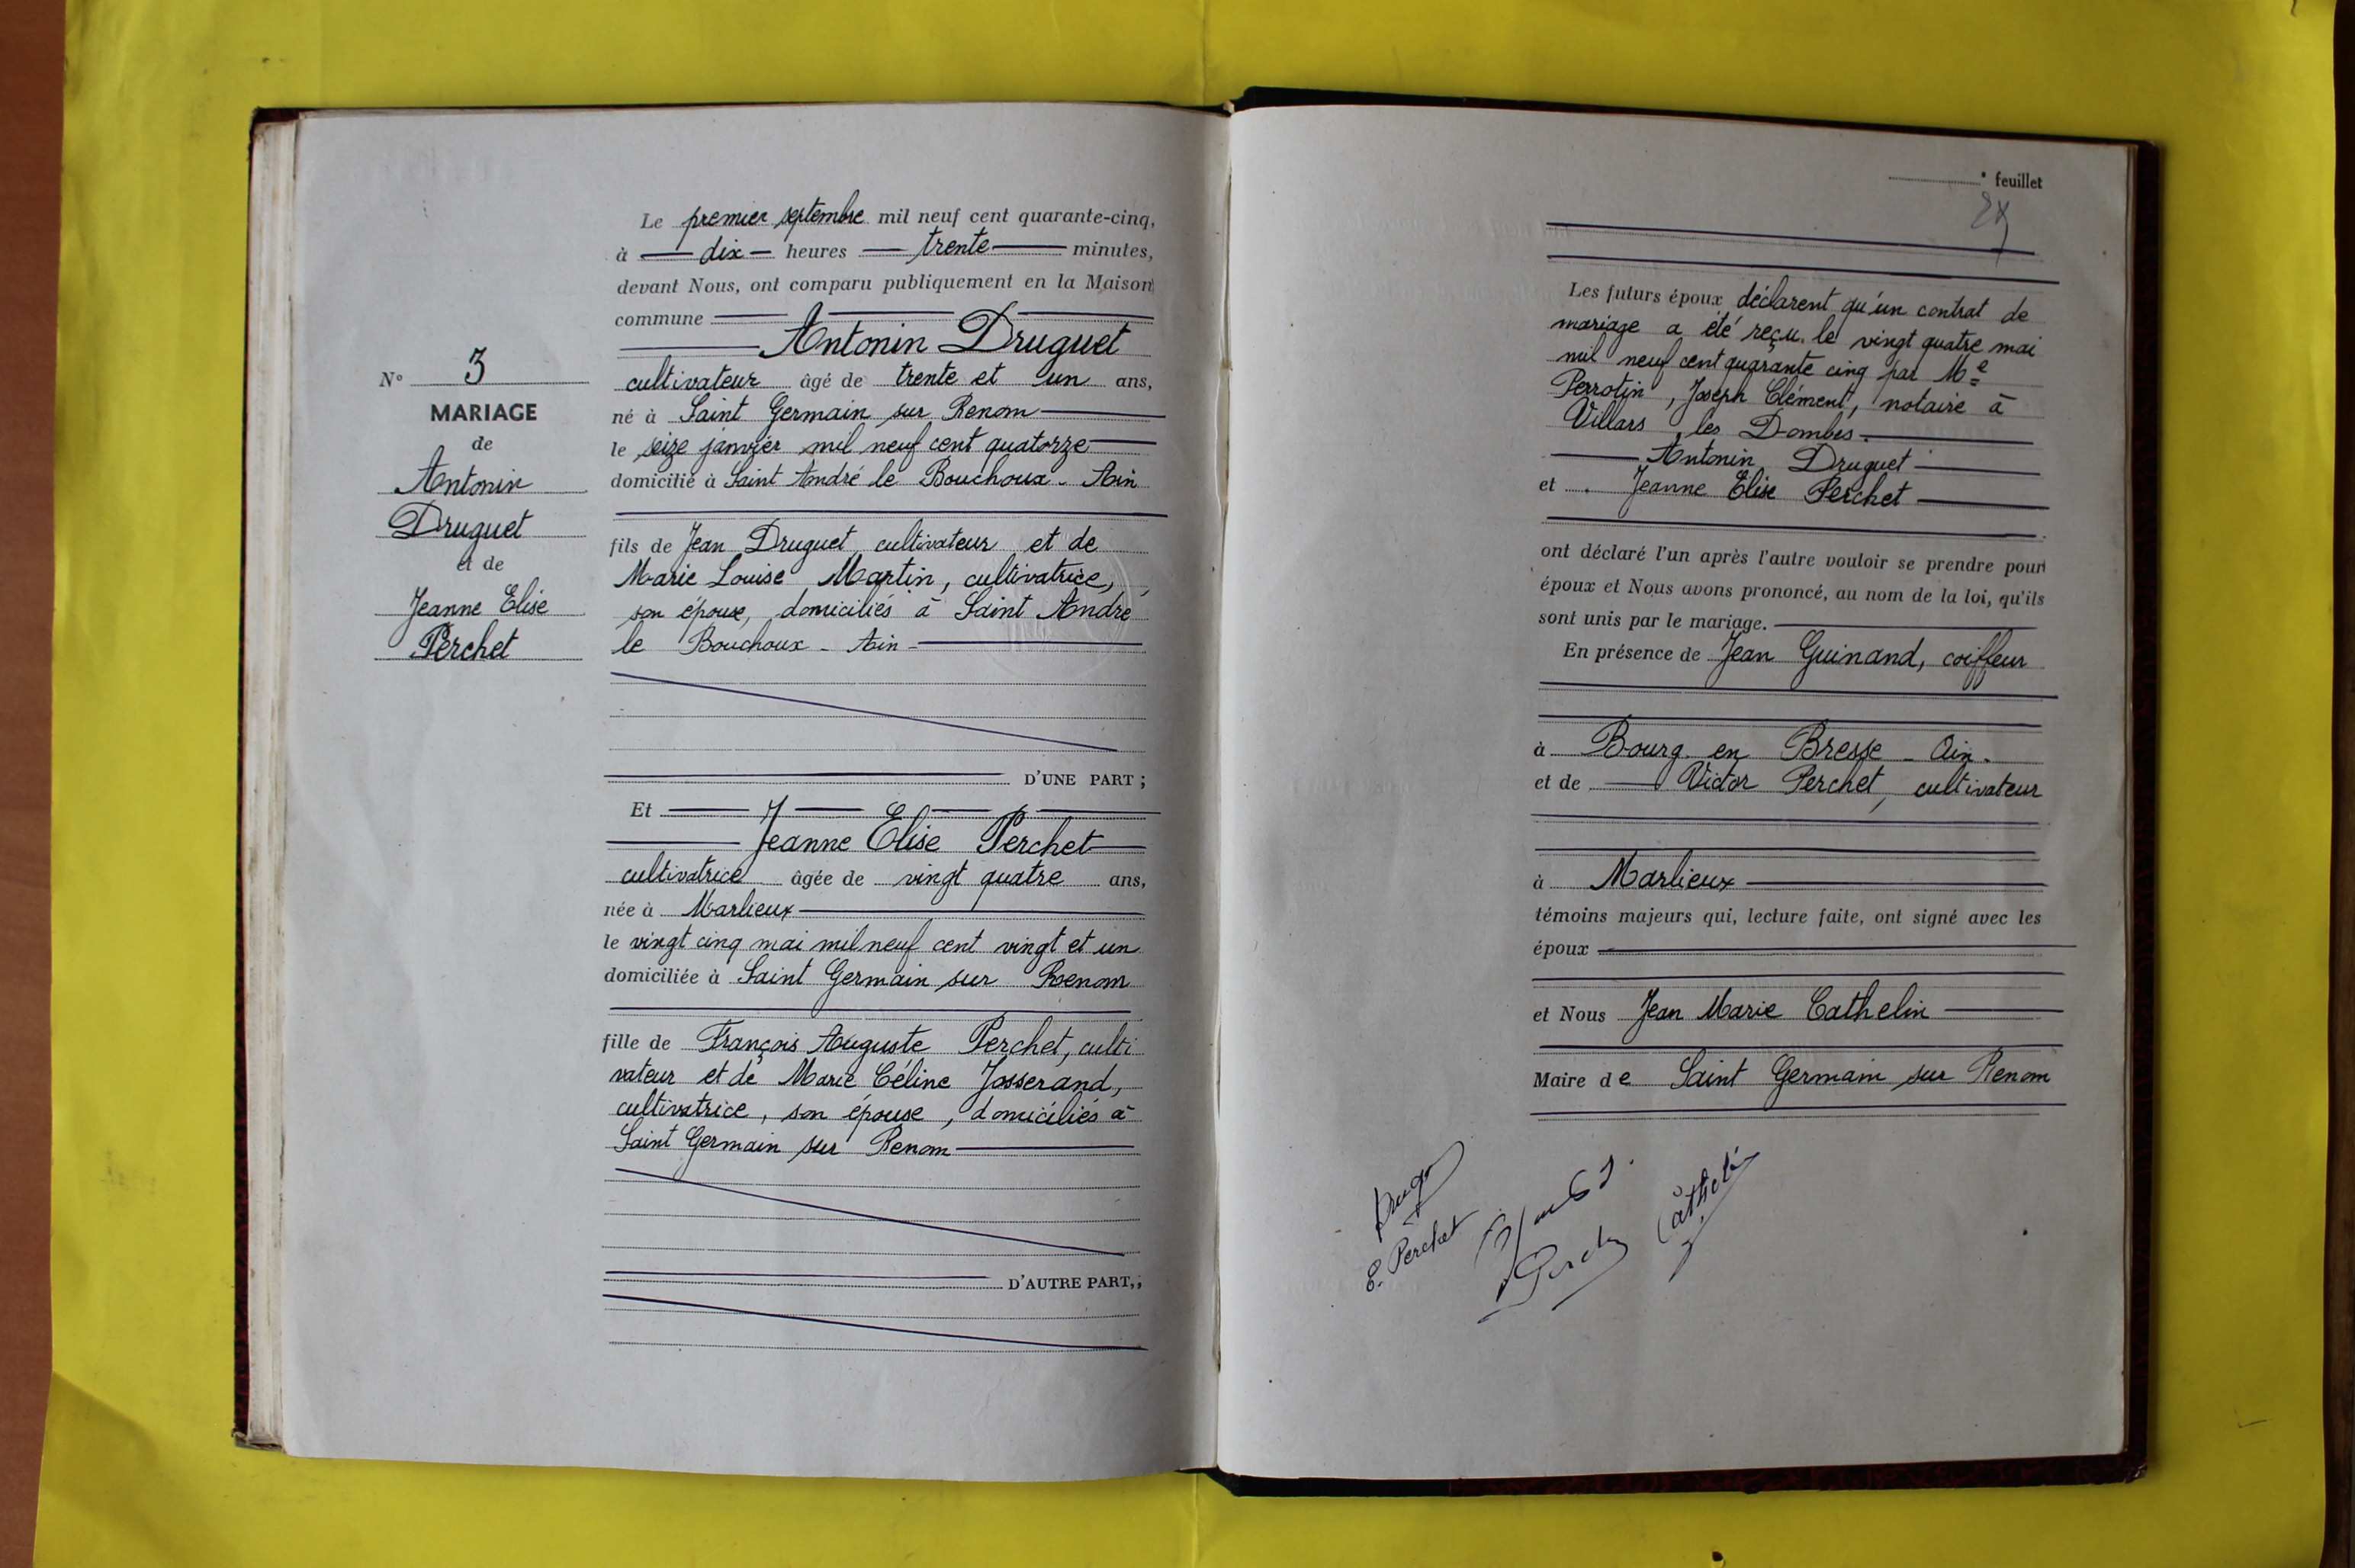 N° 3
MARIAGE
de
Antonin
Druguet
et de
Jeanne Elise
Perchet
Le premier septembre mil neuf cent quarante-cinq,
à dix heures trente minutes,
devant Nous, ont comparu publiquement en la Maison
commune
Antonin Druguet
cultivateur âgé de trente et un ans,
né à Saint Germain sur Renom
le seize janvier mil neuf cent quatorze
domicilié à Saint André le Bouchoux - Ain
fils de Jean Druguet cultivateur et de
Marie Louise Martin, cultivatrice,
son épouse, domiciliés à Saint André
le Bouchoux - Ain -
D'UNE PART ;
Et
Jeanne Elise Perchet
cultivatrice âgée de vingt quatre ans,
née à Marlieux
le vingt cinq mai mil neuf cent vingt et un
domiciliée à Saint Germain sur Renom
fille de François Auguste Perchet, culti
vateur et de Marie Céline Josserand,
cultivatrice, son épouse, domiciliés à
Saint Germain sur Renom
D'AUTRE PART,;
° feuillet
Les futurs époux déclarent qu'un contrat de
mariage a été reçu le vingt quatre mai
mil neuf cent quarante cinq par Me
Perrotin, Joseph Clément, notaire à
Villars les Dombes.
Antonin Druguet
et . Jeanne Elise Perchet
ont déclaré l'un après l'autre vouloir se prendre pour
époux et Nous avons prononcé, au nom de la loi, qu'ils
sont unis par le mariage.
En présence de Jean Guinand, coiffeur
à Bourg en Bresse - Ain.
et de Victor Perchet, cultivateur
à Marlieux
témoins majeurs qui, lecture faite, ont signé avec les
époux
et Nous Jean Marie Cathelin
Maire de Saint Germain sur Renom
E. Perchet